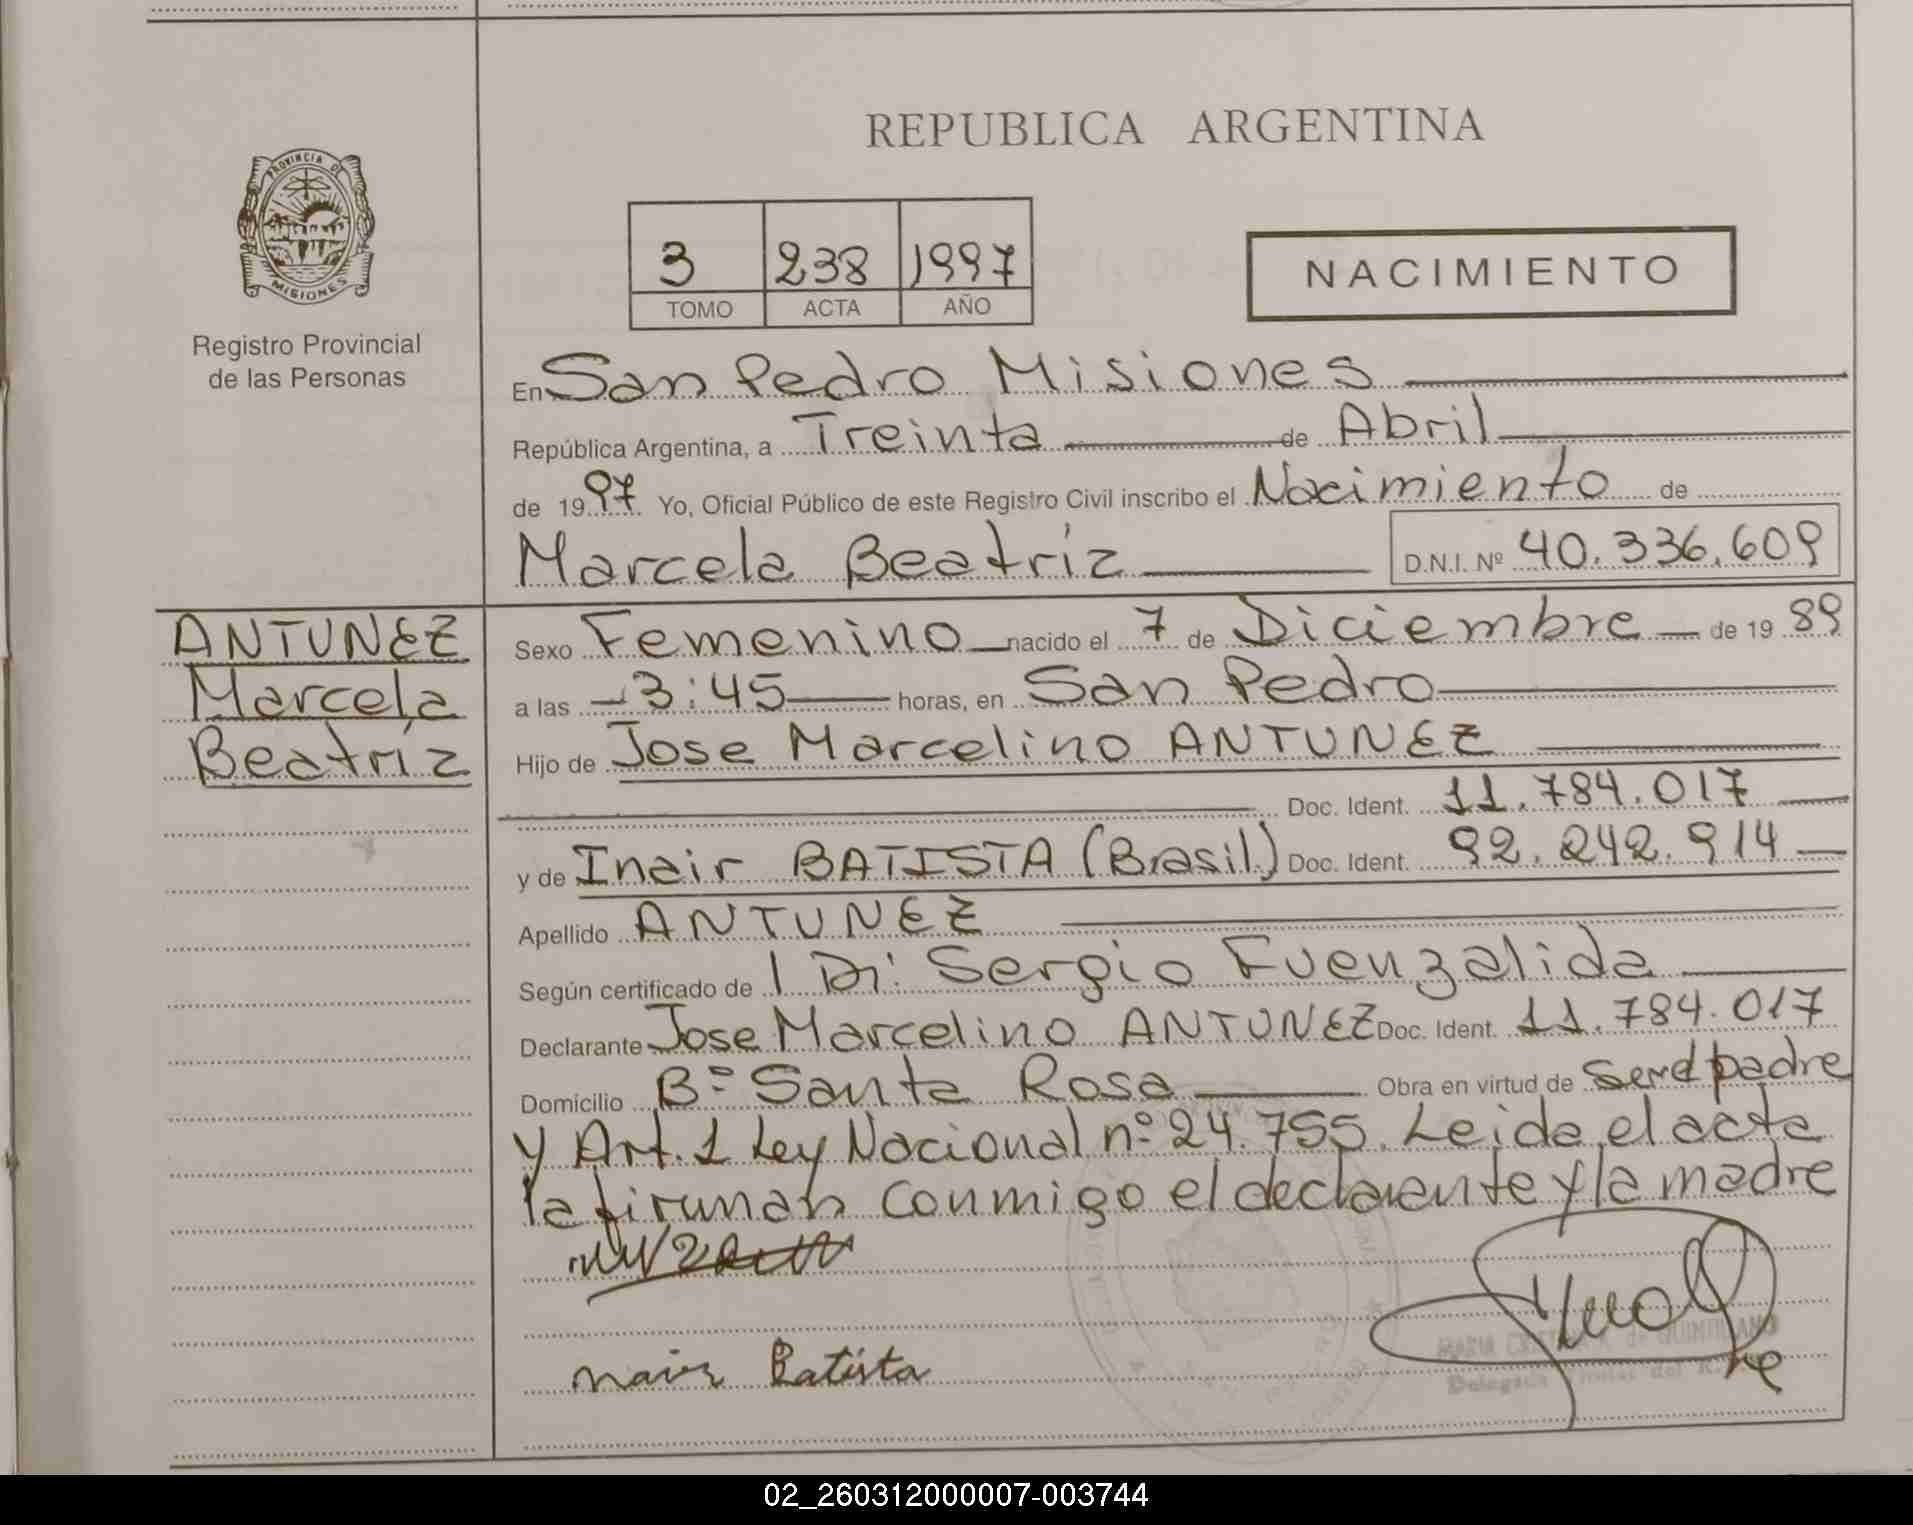 REPUBLICA ARGENTINA
PROVINCIA DE
MISIONES
Registro Provincial
de las Personas
3 238 1997
TOMO ACTA AÑO
NACIMIENTO
En San Pedro Misiones
República Argentina, a Treinta de Abril
de 1997 Yo, Oficial Público de este Registro Civil inscribo el Nacimiento de
Marcela Beatríz D.N.I. Nº 40.336.609
ANTUNEZ
Marcela
Beatríz
Sexo Femenino nacido el 7 de Diciembre de 19 89
a las 3:45 horas, en San Pedro
Hijo de Jose Marcelino ANTUNEZ
Doc. Ident. 11.784.017
y de Inair BATISTA (Brasil) Doc. Ident. 92.242.914
Apellido ANTUNEZ
Según certificado de Sergio Fuenzalida
Declarante Jose Marcelino ANTUNEZ Doc. Ident. 11.784.017
Domicilio Bº Santa Rosa Obra en virtud de ser el padre
y Art. 1 Ley Nacional nº 24.755. Leida el acta
la firman conmigo el declarante y la madre
Batista
02_260312000007-003744